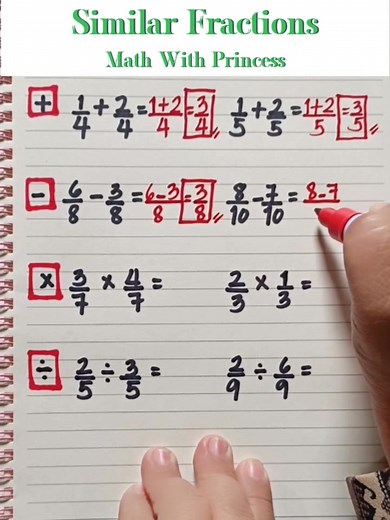 Similar Fractions
Math With Princess
+ 1/4 + 2/4 = 1+2/4 = 3/4 1/5 + 2/5 = 1+2/5 = 3/5
- 6/8 - 3/8 = 6-3/8 = 3/8 8/10 - 7/10 = 8-7
x 3/7 x 4/7 = 2/3 x 1/3 =
÷ 2/5 ÷ 3/5 = 2/9 ÷ 6/9 =